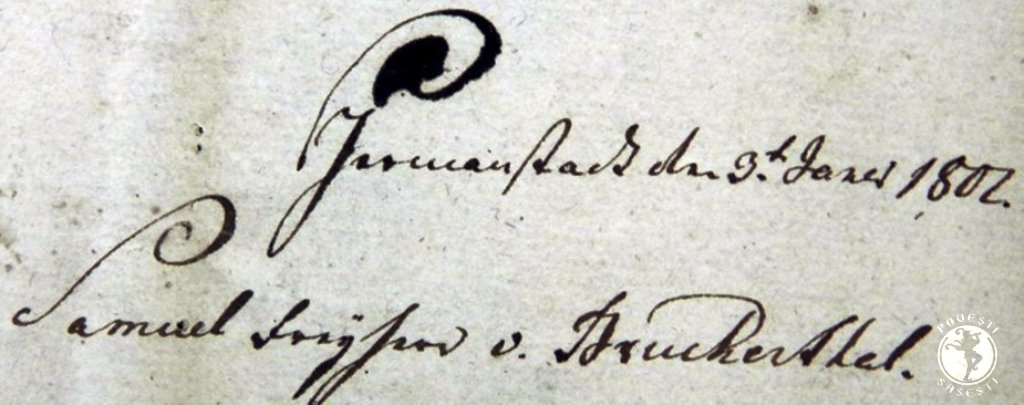 Hermanstadt den 3.t Janer 1802.
Samuel Freyherr v. Bruckenthal.
POVEȘTI SĂSEȘTI